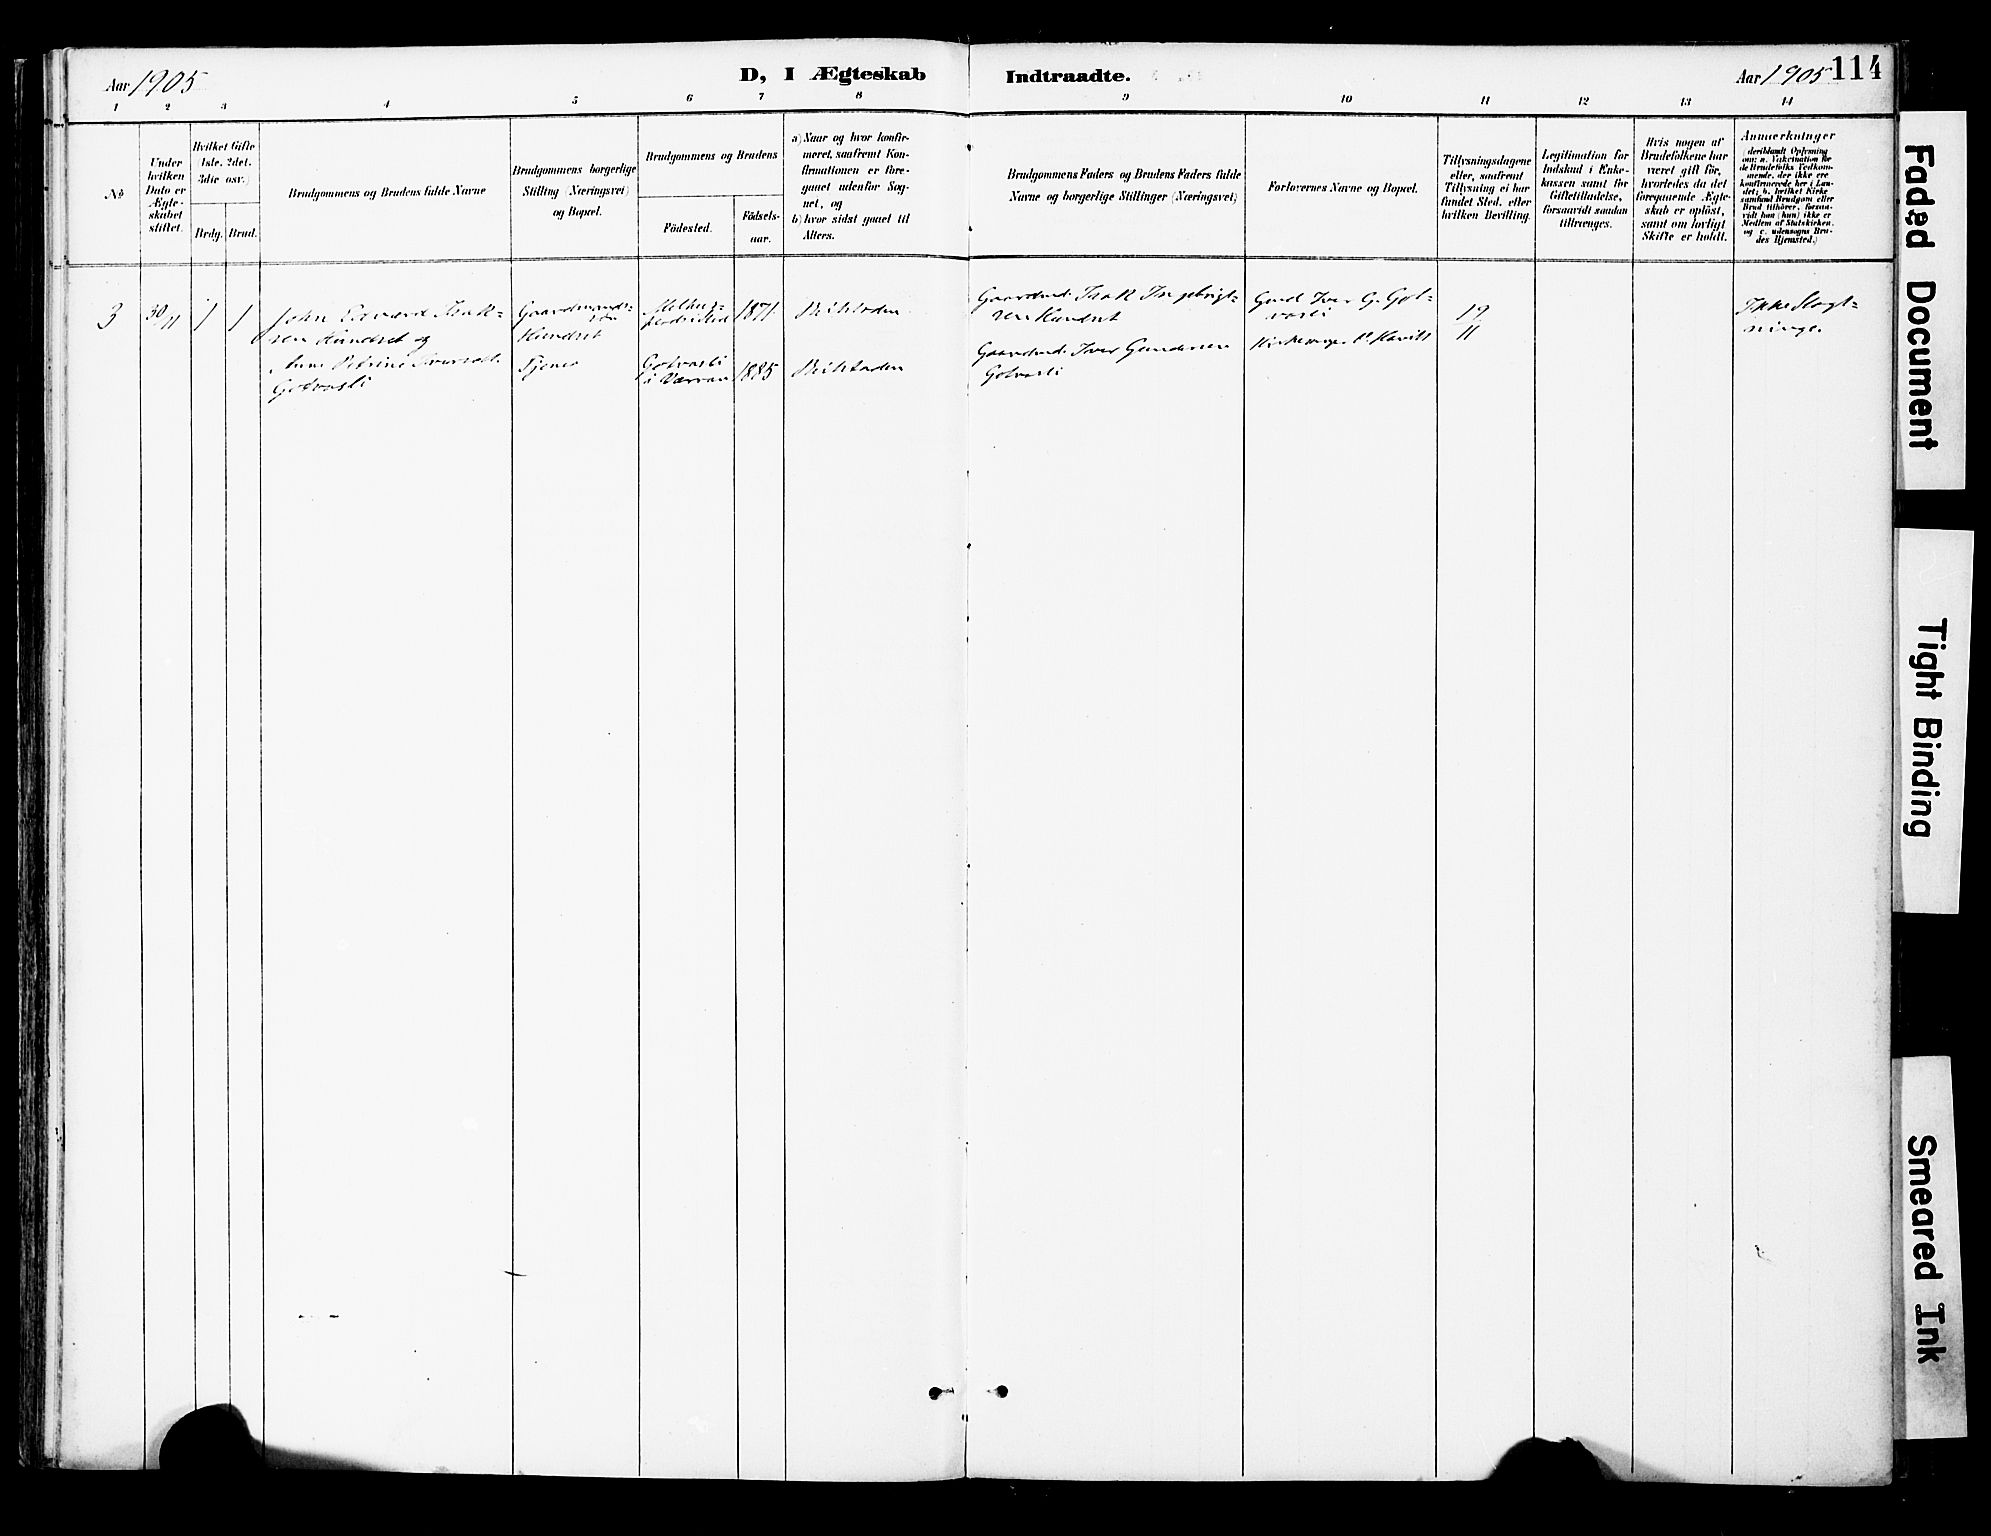 Aar 1905
D, I Ægteskab
Indtraadte.
Aar 1905
114
1 2 3 4 5 6 7 8 9 10 11 12 13 14
No
Under
hvilken
Dato er
Ægte-
skabet
stiftet.
Hvilket Gifte
(1ste, 2det,
3die osv.)
Brdg. Brud.
Brudgommens og Brudens fulde Navne
Brudgommens borgerlige
Stilling (Næringsvei)
og Bopæl.
Brudgommens og Brudens
Födested.
Födsels-
aar.
a) Naar og hvor konfir-
meret, saafremt Kon-
firmationen er fore-
gaaet udenfor Sog-
net, og
b) hvor sidst gaaet til
Alters.
Brudgommens Faders og Brudens Faders fulde
Navne og borgerlige Stillinger (Næringsvei)
Forlovernes Navne og Bopæl.
Tillysningsdagene
eller, saafremt
Tillysning ei har
fundet Sted, efter
hvilken Bevilling.
Legitimation for
Indskud i Enke-
kassen samt for
Giftetilladelse,
forsaavidt saadan
tiltrænges.
Hvis nogen af
Brudefolkene har
været gift för,
hvorledes da det
foregaaende Ægte-
skab er oplöst,
samt om lovligt
Skifte er holdt.
Anmærkninger
(deriblandt Oplysning
om: a. Vaccination for
de Brudefolks Vedkom-
mende, der ikke ere
konfirmerede her i Lan-
det; b. hvilket Kirke
samfund Brudgom eller
Brud tilhörer, forsaa-
vidt han (hun) ikke er
Medlem af Statskirken,
og c. udensogns Bru-
des Hjemsted.)
3 30/11 1 1
John Edvard Isak-
sen Hundset og
Anna Petrine Iversdt.
Gotvasli
Gaardmands-
søn
Hundset
Tjener
1871
Gotvasli
i Værran 1885
Beitstaden
Beitstaden
Gaardmd. Isak Ingebrigt-
sen Hundset
Gaardmd. Iver Gundersen
Gotvasli
Gmd Iver G. Got-
vasli
Kirkesanger
19
11
Ikke Slægt-
ninge.
Faded Document
Tight Binding
Smeared Ink